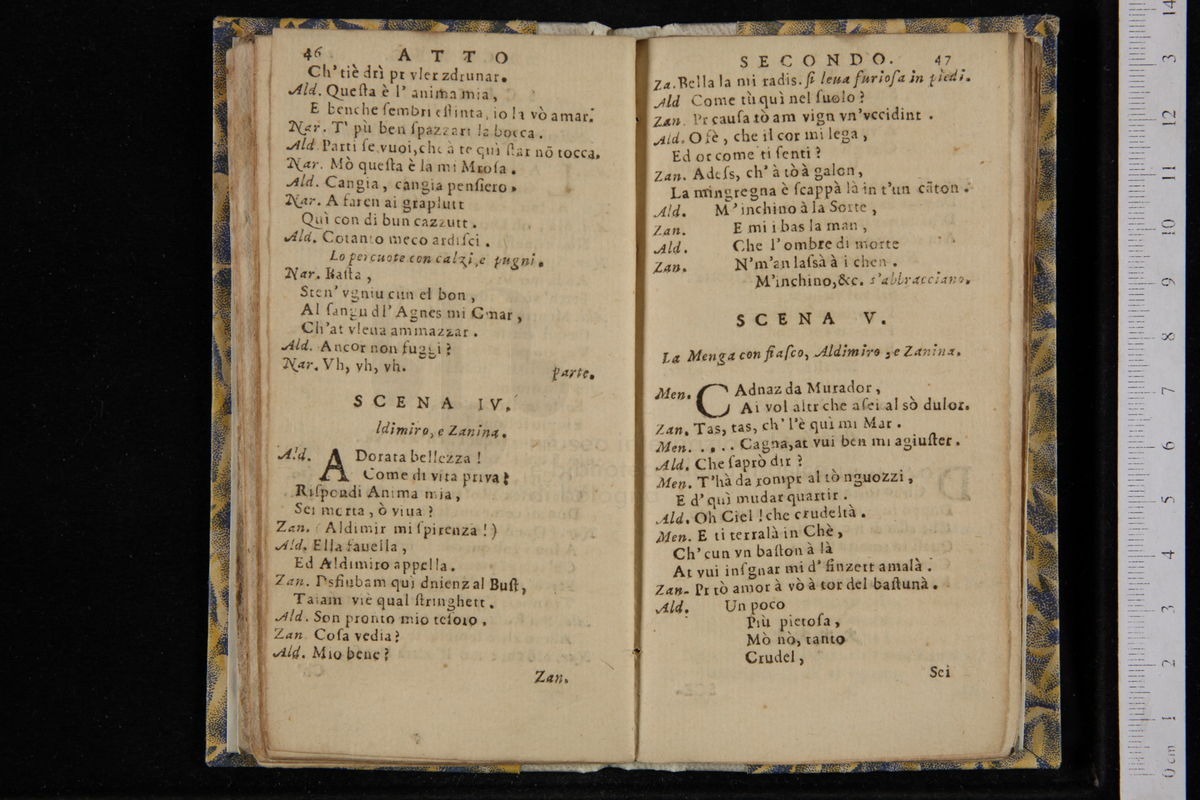 46 ATTO
Ch' tiè drì pr vler zdrunar.
Ald. Queſta è l' anima mia,
E benche ſembri eſtinta, io la vò amar.
Nar. T' pù ben ſpazzart la bocca.
Ald. Parti ſe vuoi, che à te quì ſtar nõ tocca.
Nar. Mò queſta è la mi Mroſa.
Ald. Cangia, cangia penſiero.
Nar. A faren ai graplutt
Quì con di bun cazzutt.
Ald. Cotanto meco ardiſci.
Lo percuote con calzi, e pugni.
Nar. Baſta,
Sten' vgniu cun el bon,
Al ſangu dl' Agnes mi Gnar,
Ch'at vleua ammazzar.
Ald. Ancor non fuggi?
Nar. Vh, vh, vh.
parte.
SCENA IV.
ldimiro, e Zanina.
Ald. ADorata bellezza!
Come di vita priva?
Riſpondi Anima mia,
Sei morta, ò viua?
Zan. (Aldimir mi ſpirenza!)
Ald. Ella fauella,
Ed Aldimiro appella.
Zan. Dsfiubam qui dnienz al Buſt,
Taiam viè qual ſtringhett.
Ald. Son pronto mio teſoro,
Zan Coſa vedia?
Ald. Mio bene?
Zan.
SECONDO. 47
Za. Bella la mi radis. ſi leua furioſa in piedi.
Ald Come tù quì nel ſuolo?
Zan. Pr cauſa tò am vign vn'vccidint.
Ald. O fè, che il cor mi lega,
Ed or come ti ſenti?
Zan. Adeſs, ch' à tò à galon,
La mingregna è ſcappà là in t'un cãton.
Ald. M'inchino à la Sorte,
Zan. E mi i bas la man,
Ald. Che l'ombre di morte
Zan. N'm'an laſsà à i chen.
M'inchino, &c. s'abbracciano.
SCENA V.
La Menga con fiaſco, Aldimiro, e Zanina.
Men. CAdnaz da Murador,
Ai vol altr che aſei al sò dulor.
Zan. Tas, tas, ch' l'è quì mi Mar.
Men. .... Cagna, at vui ben mi agiuſter.
Ald. Che ſaprò dir?
Men. T'hà da rompr al tò nguozzi,
E d' quì mudar quartir.
Ald. Oh Ciel! che crudeltà.
Men. E ti terralà in Chè,
Ch' cun vn baſton à là
At vui inſgnar mi d' finzett amalà.
Zan. Pr tò amor à vò à tor del baſtunà.
Ald. Un poco
Più pietoſa,
Mò nò, tanto
Crudel,
Sei